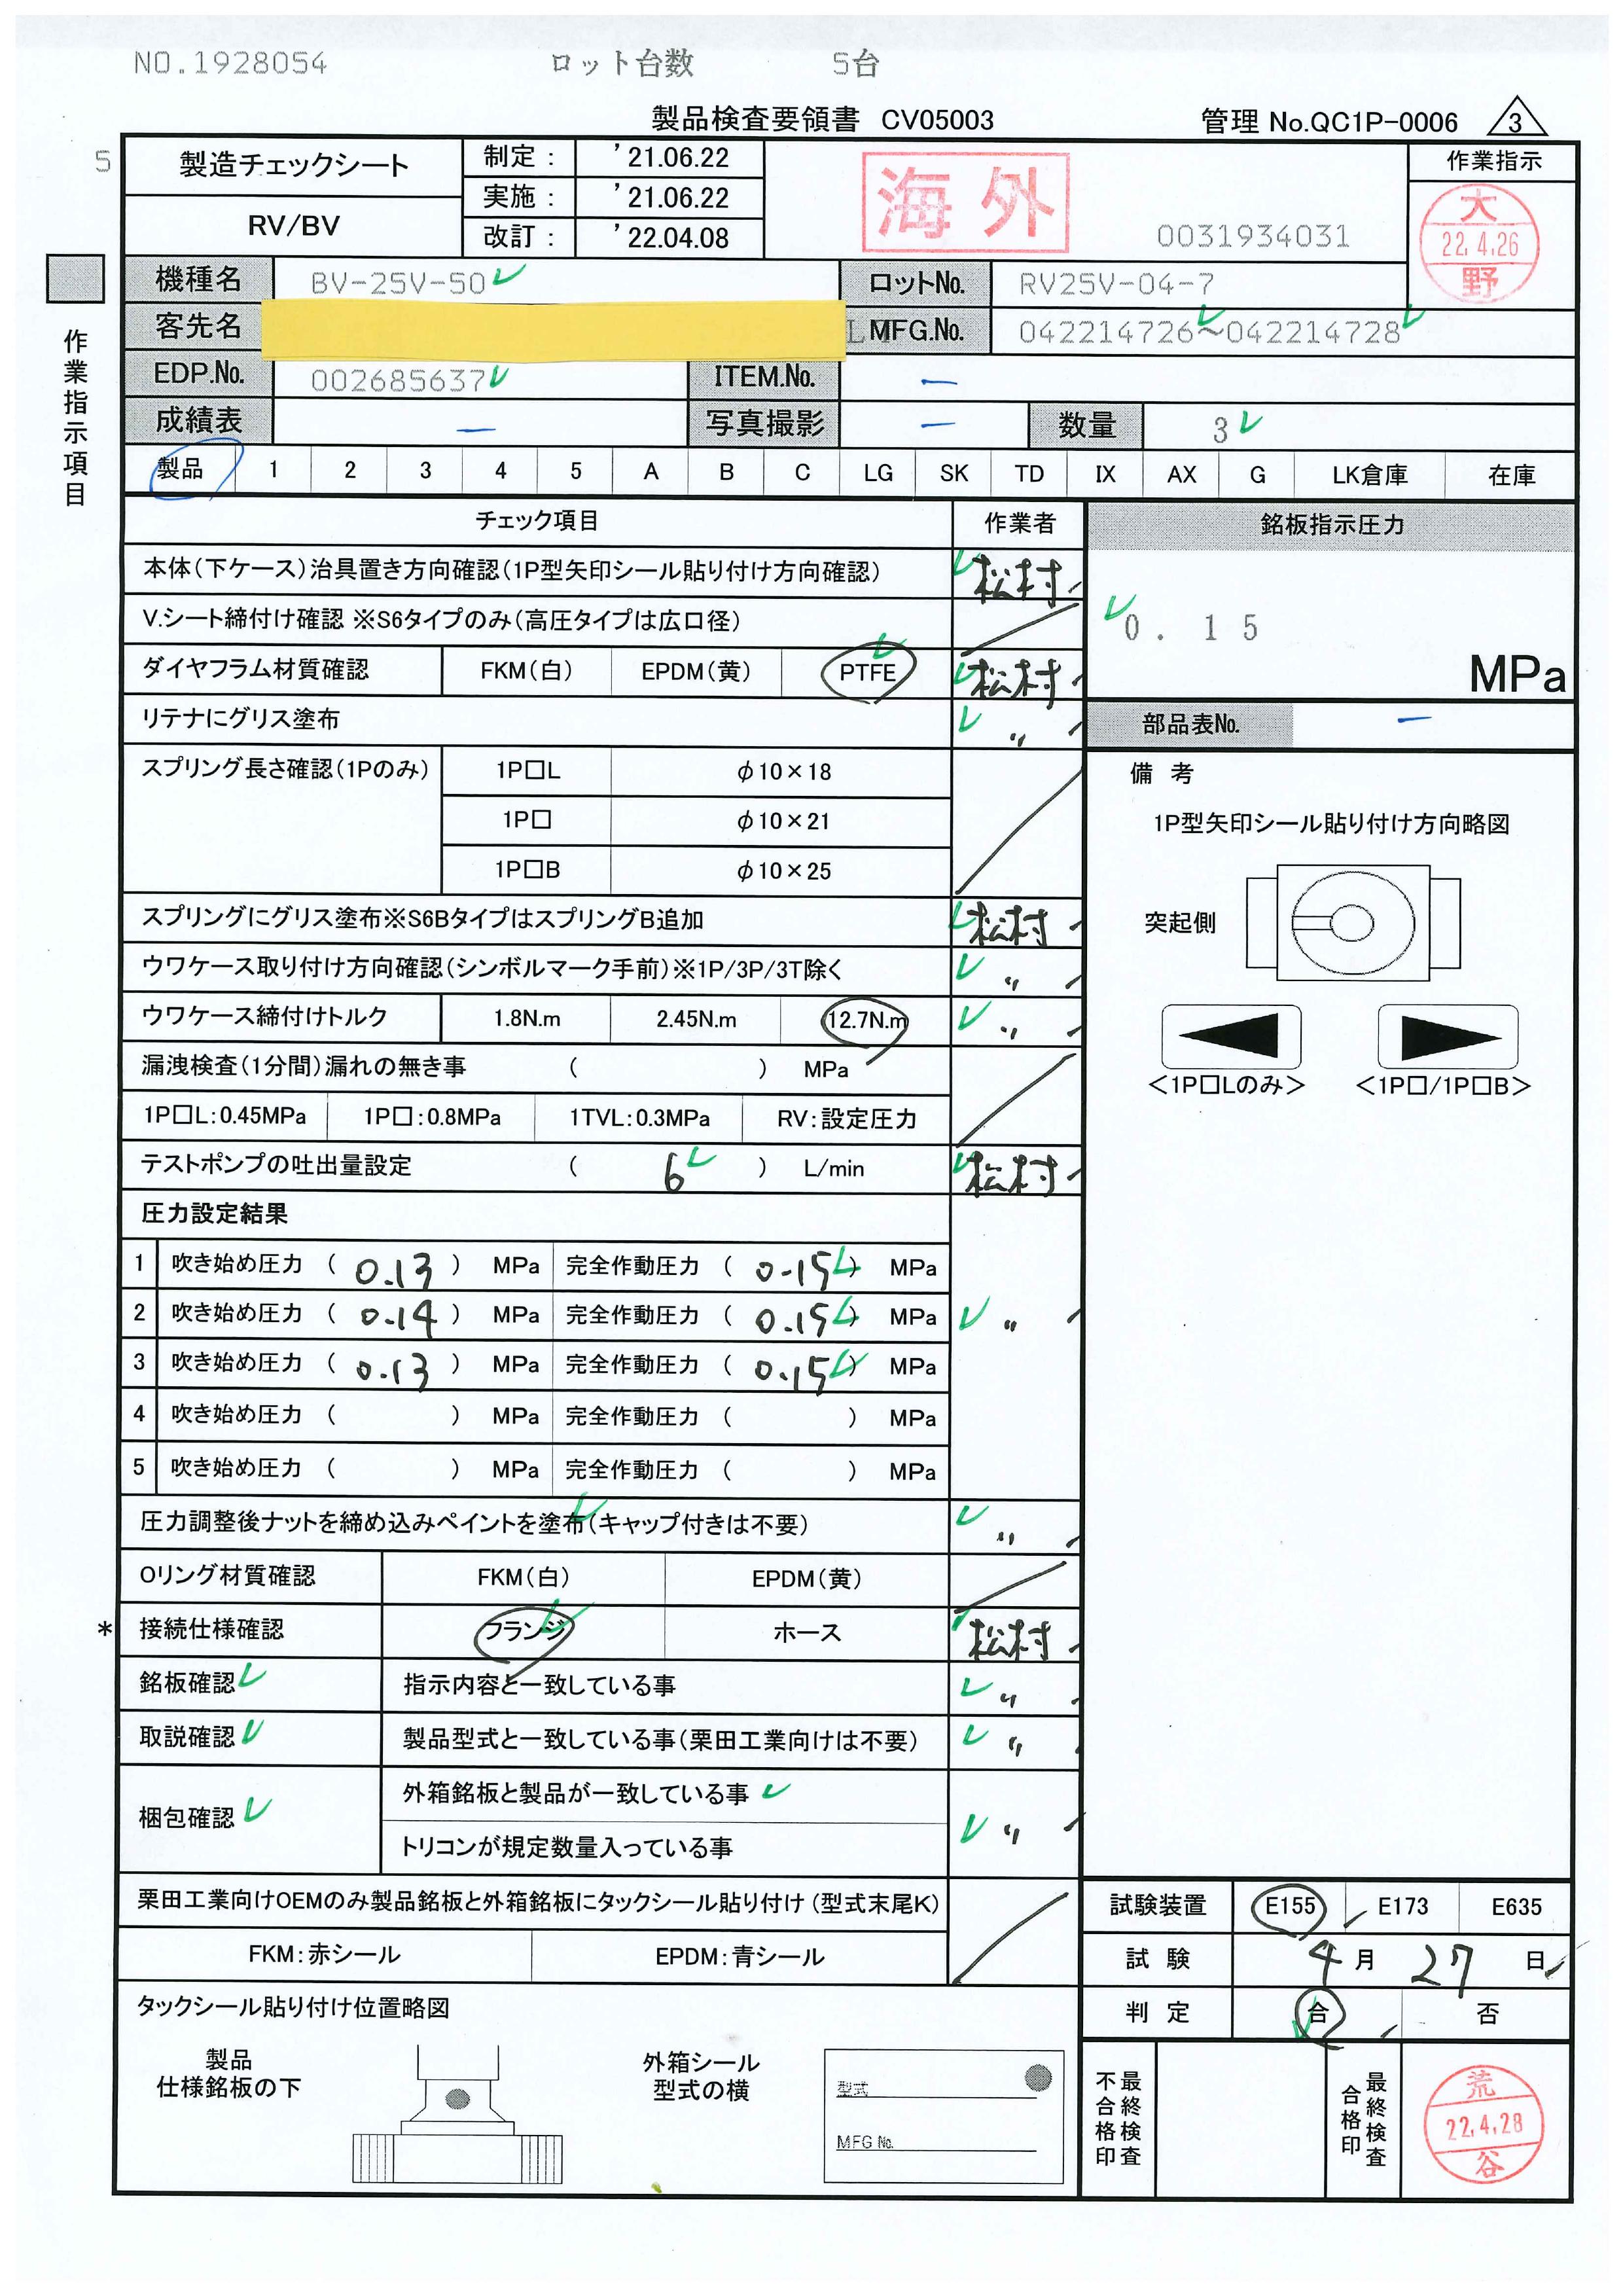 NO.1928054 ロット台数 5台
製品検査要領書 CV05003 管理 No.QC1P-0006 3
5
製造チェックシート 制定： ’21.06.22 海外 作業指示
RV/BV 実施： ’21.06.22 0031934031 大 22.4.26 野
改訂： ’22.04.08
機種名 BV-25V-50 ロットNo. RV25V-04-7
客先名 MFG.No. 042214726～042214728
EDP.No. 002685637 ITEM.No. ―
成績表 ― 写真撮影 ― 数量 3
作業指示項目
製品 1 2 3 4 5 A B C LG SK TD IX AX G LK倉庫 在庫
チェック項目 作業者 銘板指示圧力
本体（下ケース）治具置き方向確認（1P型矢印シール貼り付け方向確認） 松村
V.シート締付け確認 ※S6タイプのみ（高圧タイプは広口径）
0.15
MPa
ダイヤフラム材質確認 FKM（白） EPDM（黄） PTFE 松村
リテナにグリス塗布 〃
部品表No. ―
スプリング長さ確認（1Pのみ） 1P□L φ10×18
1P□ φ10×21
1P□B φ10×25
備 考
1P型矢印シール貼り付け方向略図
突起側
＜1P□Lのみ＞ ＜1P□/1P□B＞
スプリングにグリス塗布※S6BタイプはスプリングB追加 松村
ウワケース取り付け方向確認（シンボルマーク手前）※1P/3P/3T除く 〃
ウワケース締付けトルク 1.8N.m 2.45N.m 12.7N.m 〃
漏洩検査（1分間）漏れの無き事 （ ） MPa
1P□L：0.45MPa 1P□：0.8MPa 1TVL：0.3MPa RV：設定圧力
テストポンプの吐出量設定 （ 6 ） L/min 松村
圧力設定結果
1 吹き始め圧力 （ 0.13 ） MPa 完全作動圧力 （ 0.15 ） MPa
2 吹き始め圧力 （ 0.14 ） MPa 完全作動圧力 （ 0.15 ） MPa 〃
3 吹き始め圧力 （ 0.13 ） MPa 完全作動圧力 （ 0.15 ） MPa
4 吹き始め圧力 （ ） MPa 完全作動圧力 （ ） MPa
5 吹き始め圧力 （ ） MPa 完全作動圧力 （ ） MPa
圧力調整後ナットを締め込みペイントを塗布（キャップ付きは不要） 〃
Oリング材質確認 FKM（白） EPDM（黄）
* 接続仕様確認 フランジ ホース 松村
銘板確認 指示内容と一致している事 〃
取説確認 製品型式と一致している事（栗田工業向けは不要） 〃
梱包確認 外箱銘板と製品が一致している事 〃
トリコンが規定数量入っている事
栗田工業向けOEMのみ製品銘板と外箱銘板にタックシール貼り付け（型式末尾K）
FKM：赤シール EPDM：青シール
試験装置 E155 E173 E635
試 験 4月 27日
判 定 合 否
タックシール貼り付け位置略図
製品
仕様銘板の下
外箱シール
型式の横
型式
MFG No.
最終検査不合格印
最終検査合格印
荒 22.4.28 谷